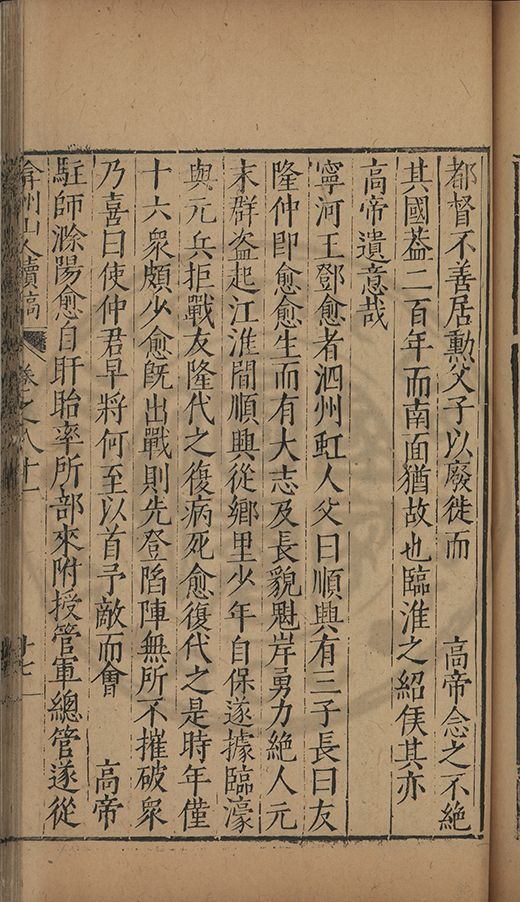 都督不善居勲父子以廢徙而　　高帝念之不絶
其國葢二百年而南面猶故也臨淮之紹侯其亦
高帝遺意哉
寧河王鄧愈者泗州虹人父曰順興有三子長曰友
隆仲即愈愈生而有大志及長貌魁岸勇力絶人元
末群盗起江淮間順興從鄉里少年自保遂據臨濠
與元兵拒戰友隆代之復病死愈復代之是時年僅
十六衆頗少愈旣出戰則先登陷陣無所不摧破衆
乃喜曰使仲君早將何至以首予敵而會　　高帝
駐師滁陽愈自盱眙率所部來附授管軍總管遂從
弇州山人續稿　卷之八十一　十七